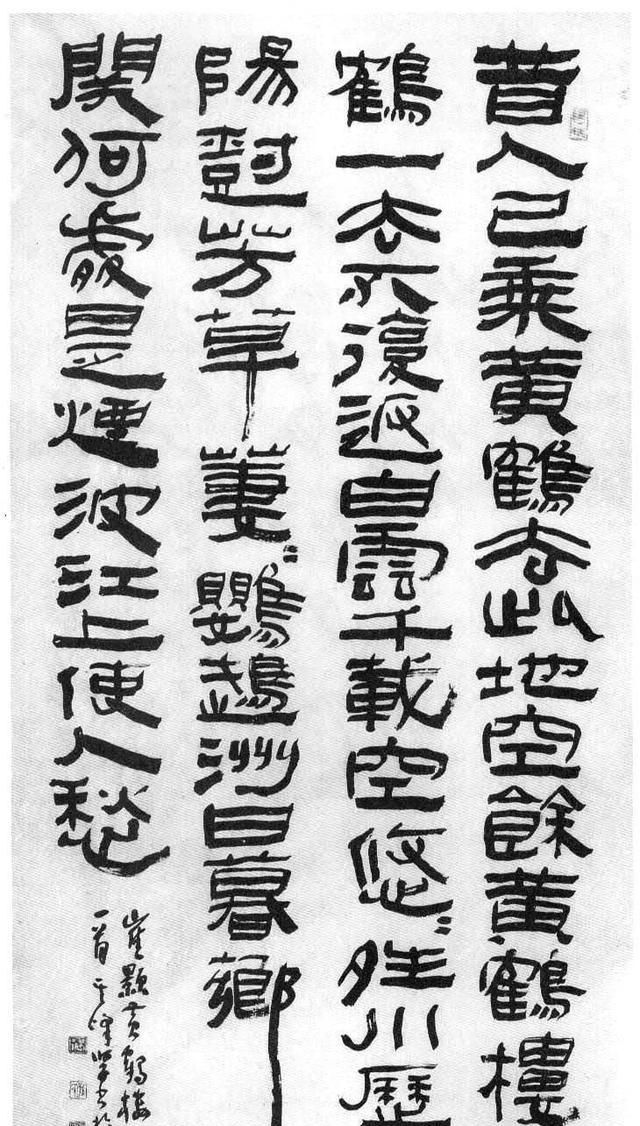 昔人已乘黃鶴去此地空餘黃鶴樓
鶴一去不復返白雲千載空悠〻夝川歷
陽尌芳草萋〻鸚鵡洲日暮鄉
關何處是煙波江上使人愁
崔顥黃鶴樓
一首